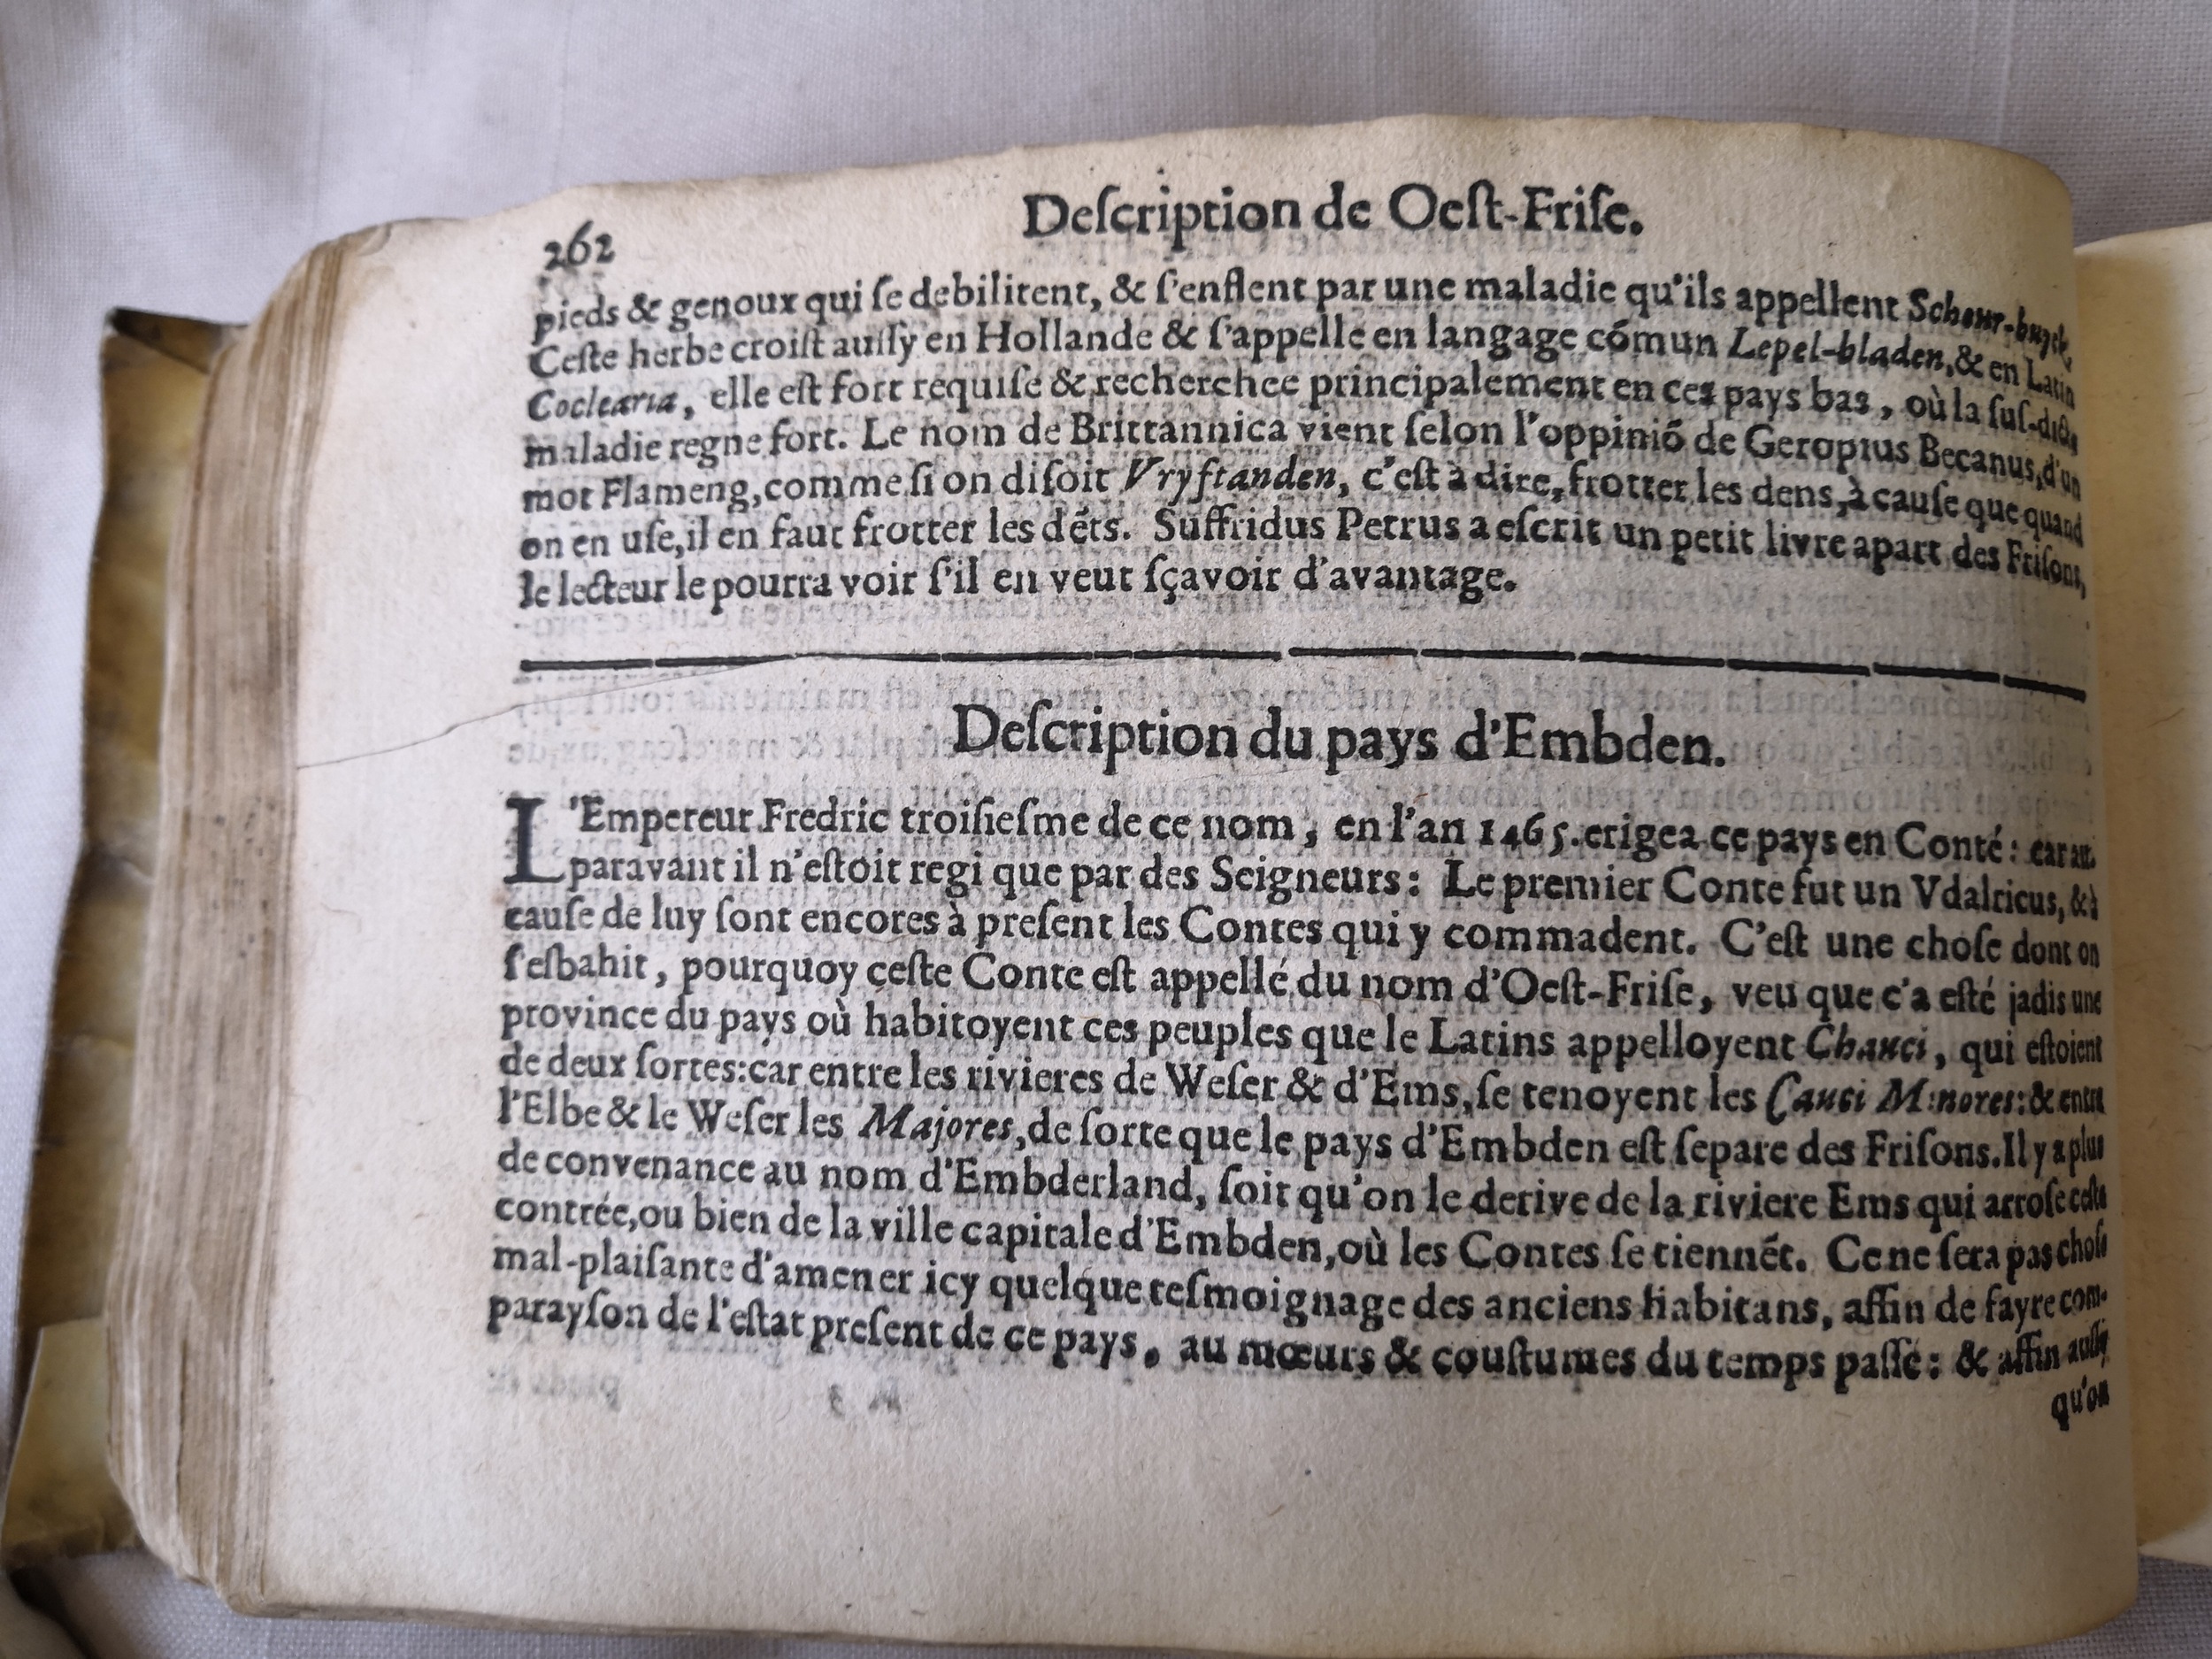 262
Deſcription de Oeſt-Friſe.
pieds & genoux qui ſe debilitent, & ſ'enflent par une maladie qu'ils appellent
Ceſte herbe croiſt auſſy en Hollande & ſ'appelle en langage cómun Lepel-bladen, & en Latin
Coclearia, elle eſt fort requiſe & recherchee principalement en ces pays bas, où la ſuſ-dicte
maladie regne fort. Le nom de Brittannica vient ſelon l'oppinió de Geropius Becanus, d'un
mot Flameng, comme ſi on diſoit Vryftanden, c'eſt à dire, frotter les dens, à cauſe que quand
on en uſe, il en faut frotter les déts. Suffridus Petrus a eſcrit un petit livre apart des Friſons,
le lecteur le pourra voir ſ'il en veut ſçavoir d'avantage.
Deſcription du pays d'Embden.
L'Empereur Fredric troiſieſme de ce nom, en l'an 1465. erigea ce pays en Conté: car au-
paravant il n'eſtoit regi que par des Seigneurs: Le premier Conte fut un Vdalricus, & à
cauſe de luy ſont encores à preſent les Contes qui y commadent. C'eſt une choſe dont on
ſ'eſbahit, pourquoy ceſte Conte eſt appellé du nom d'Oeſt-Friſe, veu que c'a eſté jadis une
province du pays où habitoyent ces peuples que le Latins appelloyent Chauci, qui eſtoient
de deux ſortes: car entre les rivieres de Weſer & d'Ems, ſe tenoyent les Cauci Minores: & entre
l'Elbe & le Weſer les Majores, de ſorte que le pays d'Embden eſt ſepare des Friſons. Il y a plus
de convenance au nom d'Embderland, ſoit qu'on le derive de la riviere Ems qui arroſe ceſte
contrée, ou bien de la ville capitale d'Embden, où les Contes ſe tiennét. Ce ne ſera pas choſe
mal-plaiſante d'amener icy quelque teſmoignage des anciens habitans, affin de fayre com-
parayſon de l'eſtat preſent de ce pays, au mœurs & couſtumes du temps paſſé: & affin auſſy
qu'on